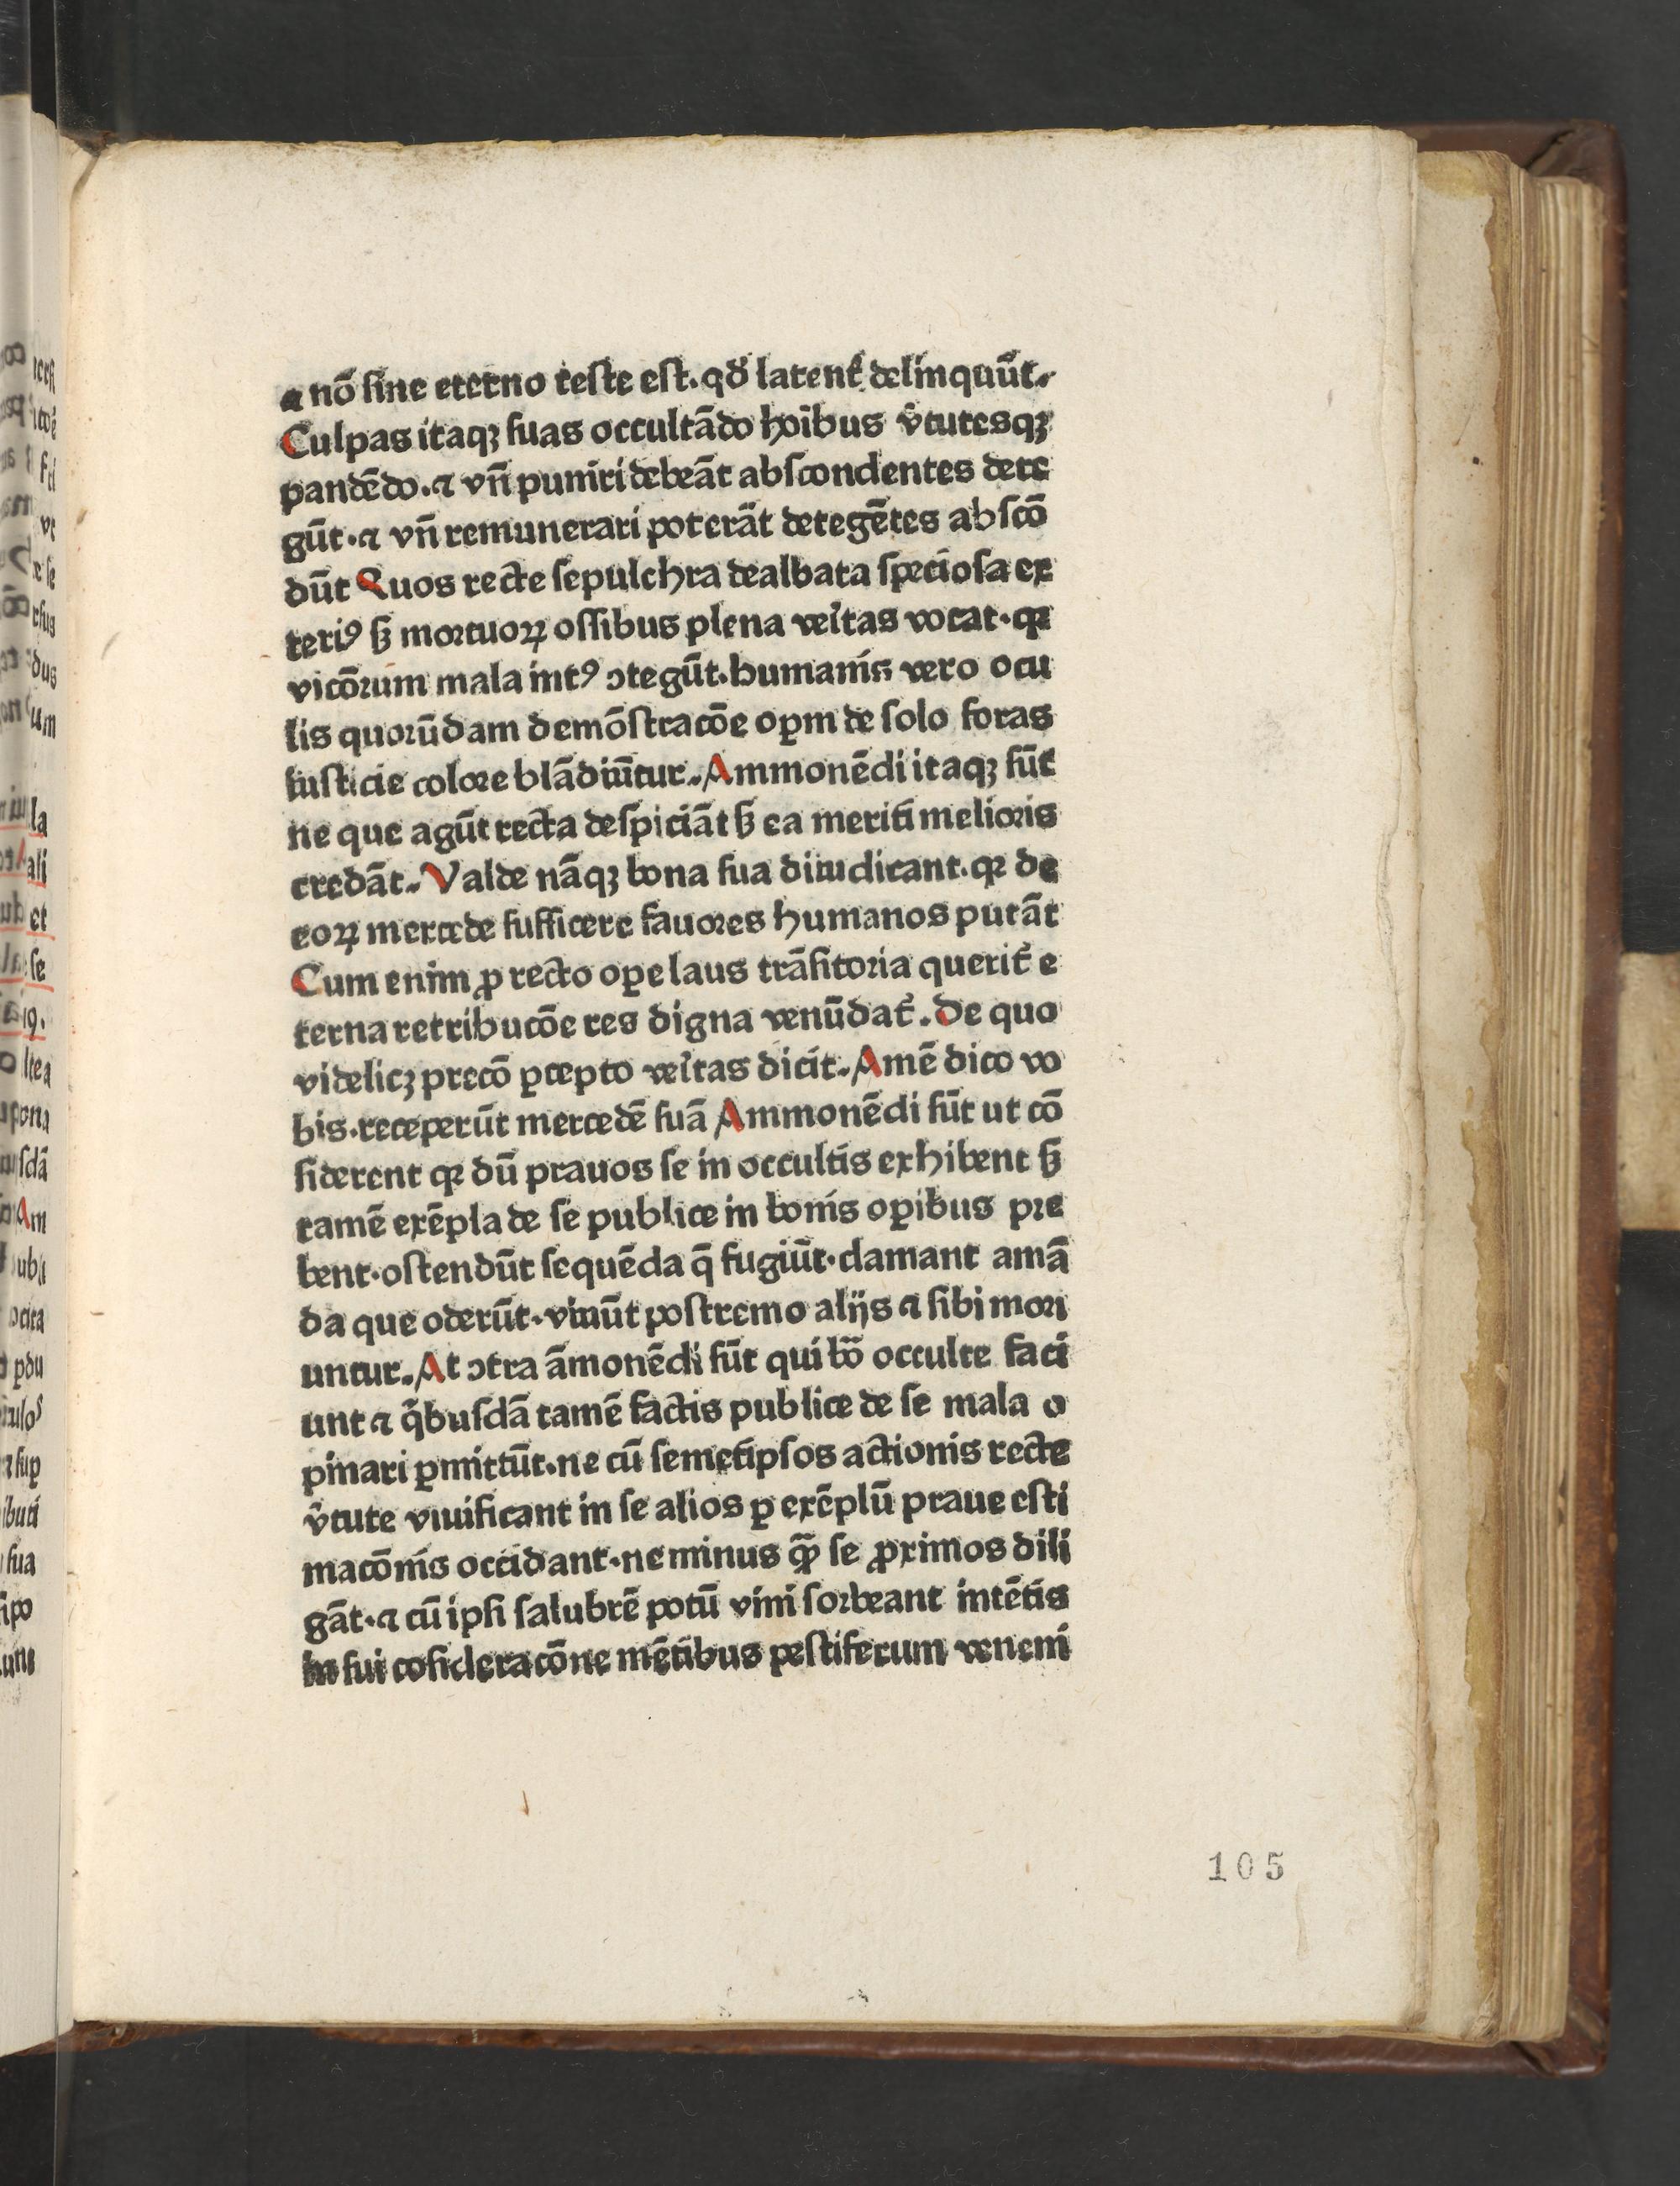 ⁊ nō ſine eterno teſte eſt. qđ latent̉ delinquūt.
Culpas itaqꝫ ſuas occultādo hoībus v̉tutesqꝫ
pandēdo. ⁊ vn̄ puniri debeāt abſcondentes dete
gūt. ⁊ vn̄ remunerari poterāt detegētes abſcō
dūt Quos recte ſepulchra dealbata ſpecioſa ex
teriꝰ ſꝫ mortuoꝝ oſſibus plena veītas vocat. qꝛ
vicōrum mala intꝰ ↄtegūt. humanis vero ocu
lis quorūdam demōſtracōe oꝑm de ſolo foras
iuſticie colore blādiūtur. Ammonēdi itaqꝫ ſūt
ne que agūt recta deſpiciāt ſꝫ ea meriti melioris
credāt. Valde nāqꝫ bona ſua diiudicant. qꝛ de
eoꝝ mercede ſufficere fauores humanos putāt
Cum enim ꝓ recto oꝑe laus trāſitoria querit̉ e
terna retribucōe res digna venūdat̉. De quo
videlicꝫ precō ꝑcepto veītas dicit. Amē dico vo
bis. receperūt mercedē ſuā Ammonēdi ſūt ut cō
ſiderent qꝛ dū prauos ſe in occultis exhibent ſꝫ
tamē exēpla de ſe publice in bonis oꝑibus pre
bent. oſtendūt ſequēda q̄ fugiūt. clamant amā
da que oderūt. viuūt poſtremo alijs ⁊ ſibi mori
untur. At ↄtra āmonēdi ſūt qui bo̅ occulte faci
unt ⁊ q̇buſdā tamē factis publice de ſe mala o
pinari ꝑmittūt. ne cū ſemetipſos actionis recte
v̉tute viuificant in ſe alios ꝑ exēplū praue eſti
macōnis occidant. ne minus qꝫ̄ ſe ꝓximos dili
gāt. ⁊ cū ipſi ſalubrē potū vini ſorbeant intētis
in ſui coſideracōne mētibus peſtiferum veneni
105